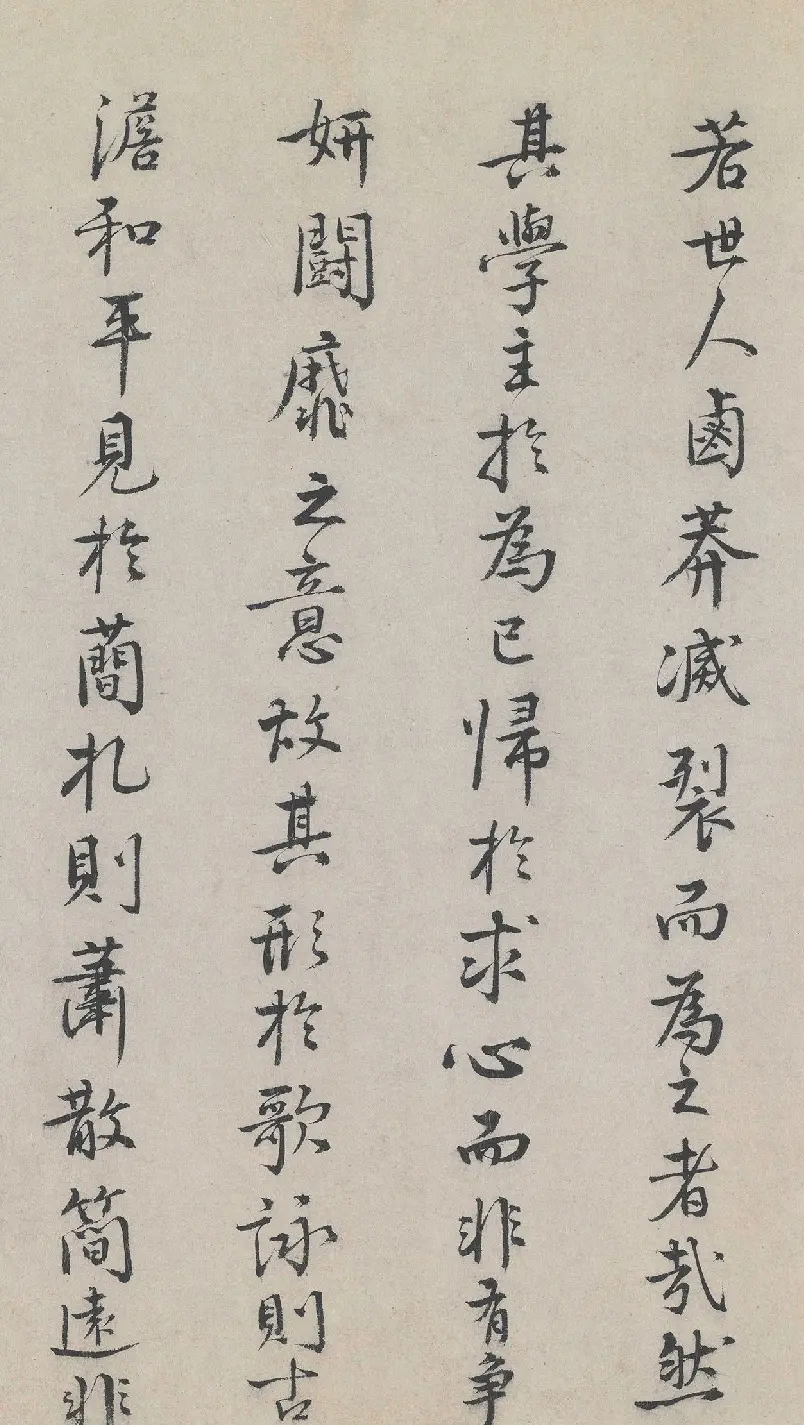 若世人鹵莽滅裂而為之者哉然
其學主於為己歸於求心而非有争
妍鬪靡之意故其形於歌詠則古
澹和平見於蕳札則蕭散簡遠非